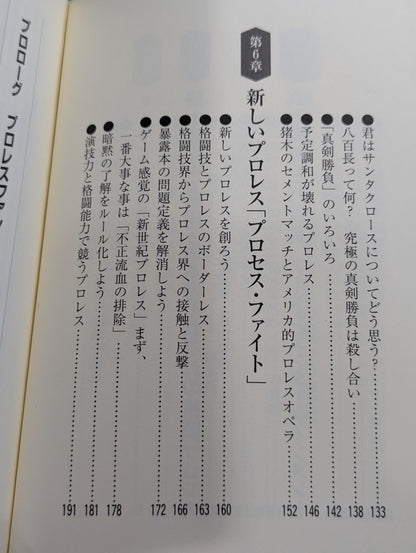 ●君はサンタクロースについてどう思う?……133
●八百長って何? 究極の真剣勝負は殺し合い……138
●「真剣勝負」のいろいろ……142
●予定調和が壊れるプロレス……146
●猪木のセメントマッチとアメリカ的プロレスオペラ……152
第6章
新しいプロレス「プロセス・ファイト」
●新しいプロレスを創ろう……160
●格闘技とプロレスのボーダーレス……163
●格闘技界からプロレス界への接触と反撃……166
●暴露本の問題定義を解消しよう……172
●ゲーム感覚の「新世紀プロレス」まず、
一番大事な事は「不正流血の排除」……178
●暗黙の了解をルール化しよう……181
●演技力と格闘能力で競うプロレス……191
プロローグ プロレスファン